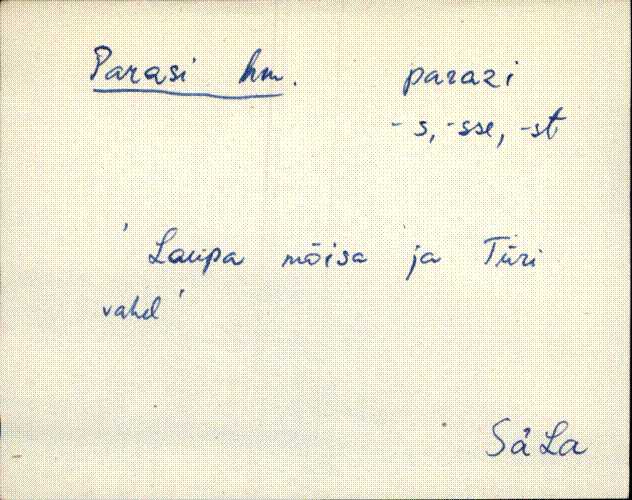 Parasi hm. parazi
-s, -sse, -st
' Laupa mõisa ja Türi
vahel'
SäLa